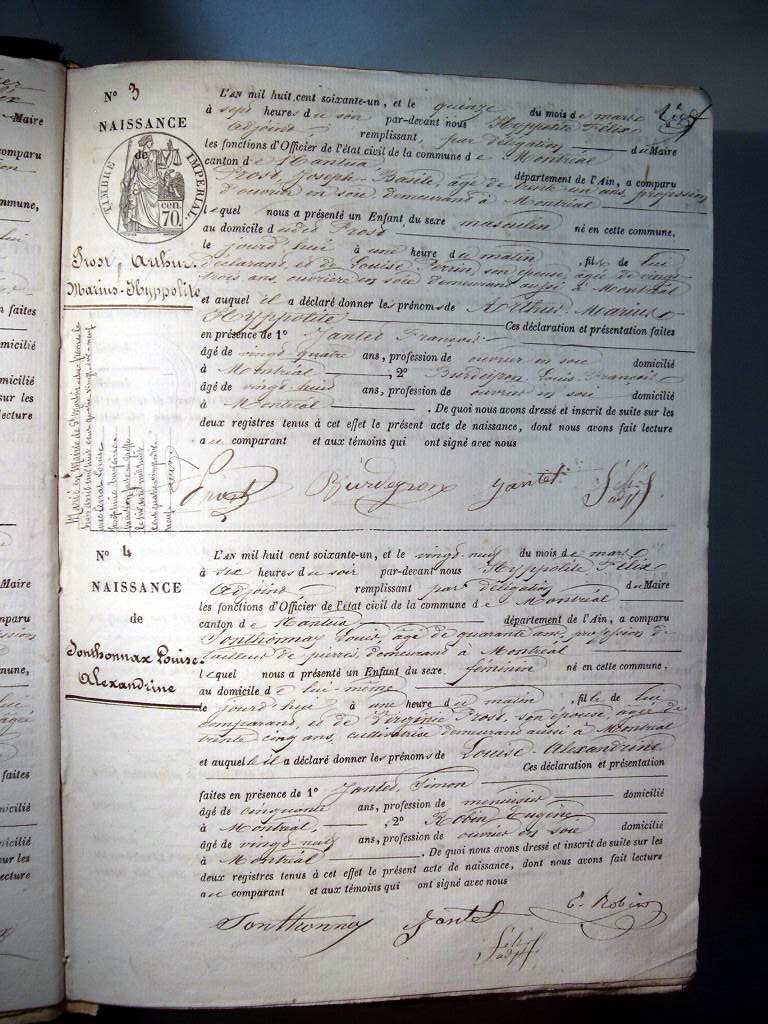 N° 3
NAISSANCE
de
TIMBRE IMPÉRIAL
70 cen.
Prost Arthur
Marius-Hyppolite
L'AN mil huit cent soixante-un, et le quinze du mois de mars
à sept heures du soir par-devant nous Hyppolite Félix
adjoint, remplissant, par délégation du Maire
les fonctions d'Officier de l'état civil de la commune de Montréal
canton de Nantua département de l'Ain, a comparu
Prost, Joseph-Basile, âgé de trente-un ans, profession
d'ouvrier en soie demeurant à Montréal
lequel nous a présenté un Enfant du sexe masculin né en cette commune,
au domicile dudit Prost
le jourd'hui à une heure du matin, fils de lui
déclarant, et de Louise Perrin, son épouse, âgée de vingt-
trois ans, ouvrière en soie demeurant aussi à Montréal
et auquel il a déclaré donner les prénoms de Arthur-Marius-
Hyppolite Ces déclaration et présentation faites
en présence de 1° Jantet François
âgé de vingt quatre ans, profession de ouvrier en soie domicilié
à Montréal, 2° Burdeyron Louis François
âgé de vingt huit ans, profession de ouvrier en soie domicilié
à Montréal. De quoi nous avons dressé et inscrit de suite sur les
deux registres tenus à cet effet le présent acte de naissance, dont nous avons fait lecture
au comparant et aux témoins qui ont signé avec nous
Prost Burdeyron Jantet Félix
adjt
N° 4
NAISSANCE
de
Sonthonnax Louise-
Alexandrine
L'AN mil huit cent soixante-un, et le vingt-neuf du mois de mars
à six heures du soir par-devant nous Hyppolite Félix
adjoint remplissant par délégation du Maire
les fonctions d'Officier de l'état civil de la commune de Montréal
canton de Nantua département de l'Ain, a comparu
Sonthonnax Louis, âgé de quarante ans, profession de
tailleur de pierres, demeurant à Montréal
lequel nous a présenté un Enfant du sexe féminin né en cette commune,
au domicile de lui-même
le jourd'hui à une heure du matin, fille de lui
comparant, et de Virginie Prost, son épouse, âgée de
trente cinq ans, cultivatrice demeurant aussi à Montréal
et auquel il a déclaré donner les prénoms de Louise-Alexandrine
Ces déclaration et présentation
faites en présence de 1° Jantet, Simon
âgé de cinquante ans, profession de menuisier domicilié
à Montréal, 2° Robin Eugène
âgé de vingt neuf ans, profession de ouvrier en soie domicilié
à Montréal. De quoi nous avons dressé et inscrit de suite sur les
deux registres tenus à cet effet le présent acte de naissance, dont nous avons fait lecture
au comparant et aux témoins qui ont signé avec nous
Sonthonnax Jantet E. Robin
Félix
adjt